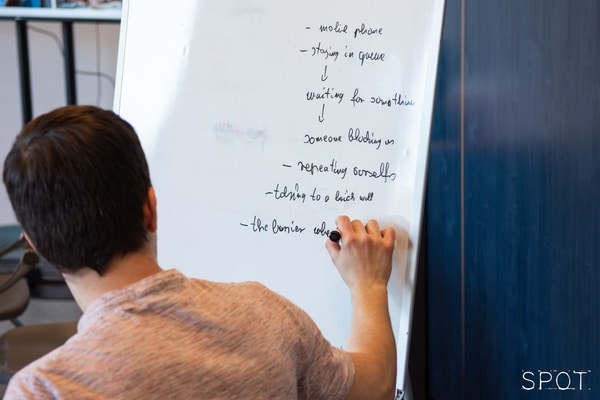 - mobile phone
- staying in queue
↓
waiting for something
↓
someone blocking us
- repeating ourselfs
- talking to a brick wall
- the barrier
SPOT